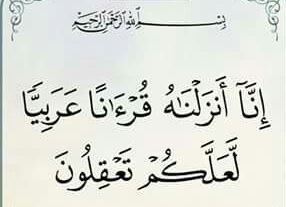 بِسْمِ اللَّهِ الرَّحْمَٰنِ الرَّحِيمِ
إِنَّآ أَنزَلْنَٰهُ قُرْءَٰنًا عَرَبِيًّا
لَّعَلَّكُمْ تَعْقِلُونَ